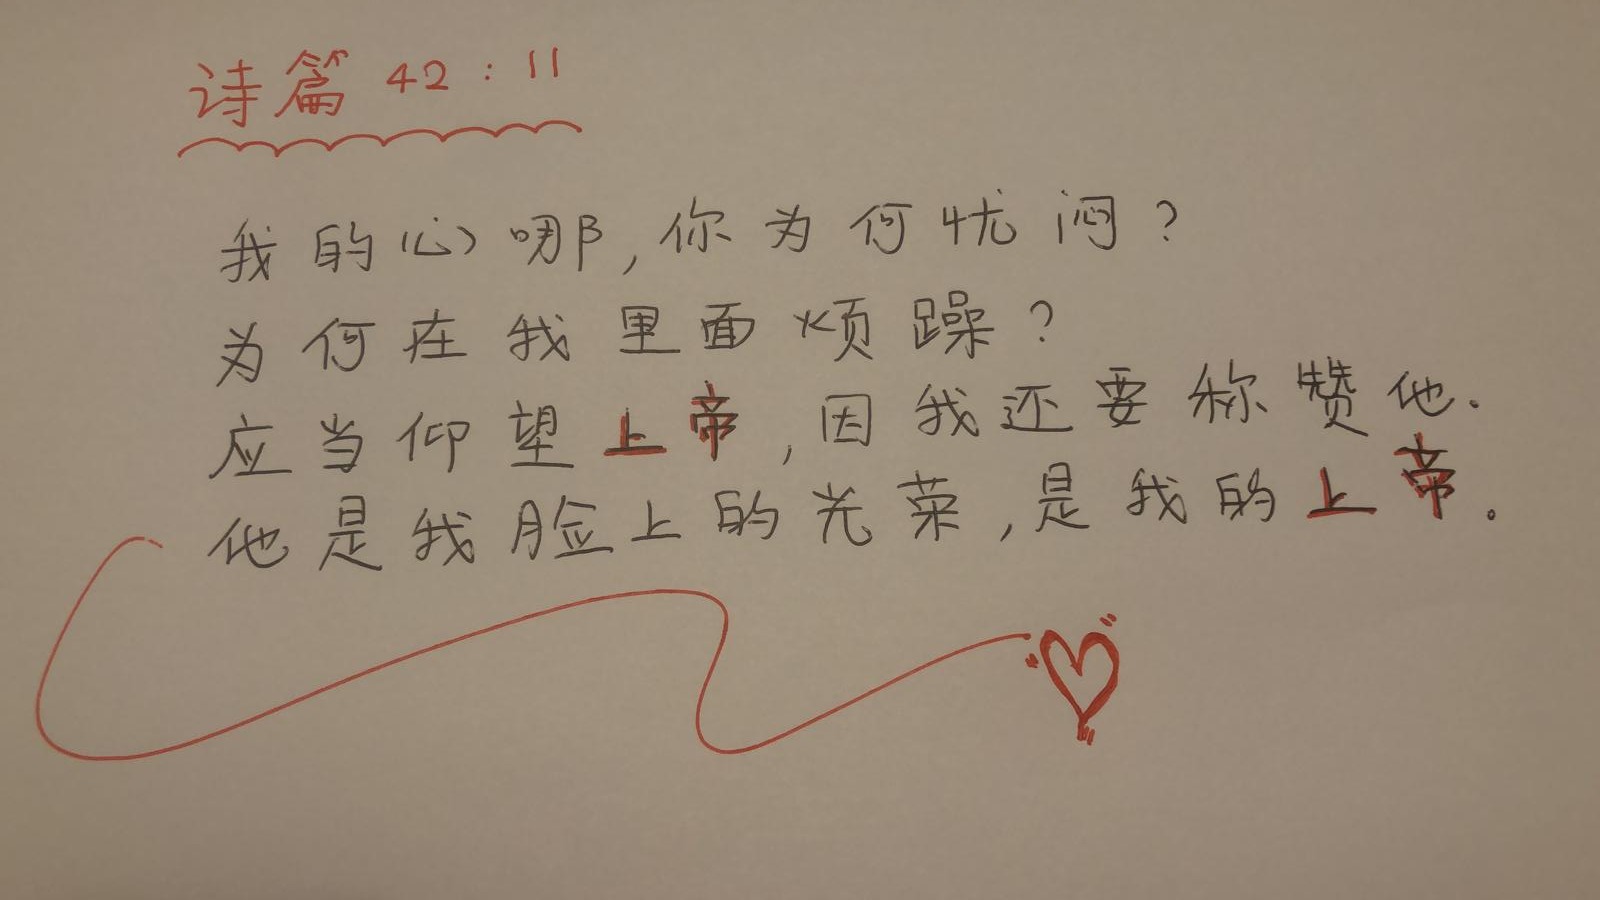 诗篇 42:11
我的心哪,你为何忧闷?
为何在我里面烦躁?
应当仰望上帝,因我还要称赞他.
他是我脸上的光荣,是我的上帝。